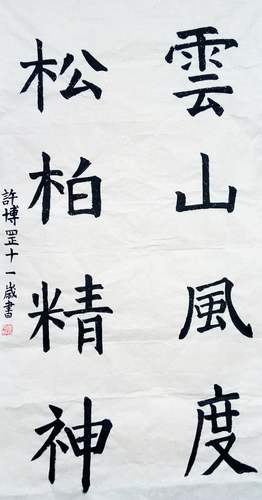 雲山風度
松柏精神
許博罡十一歲書